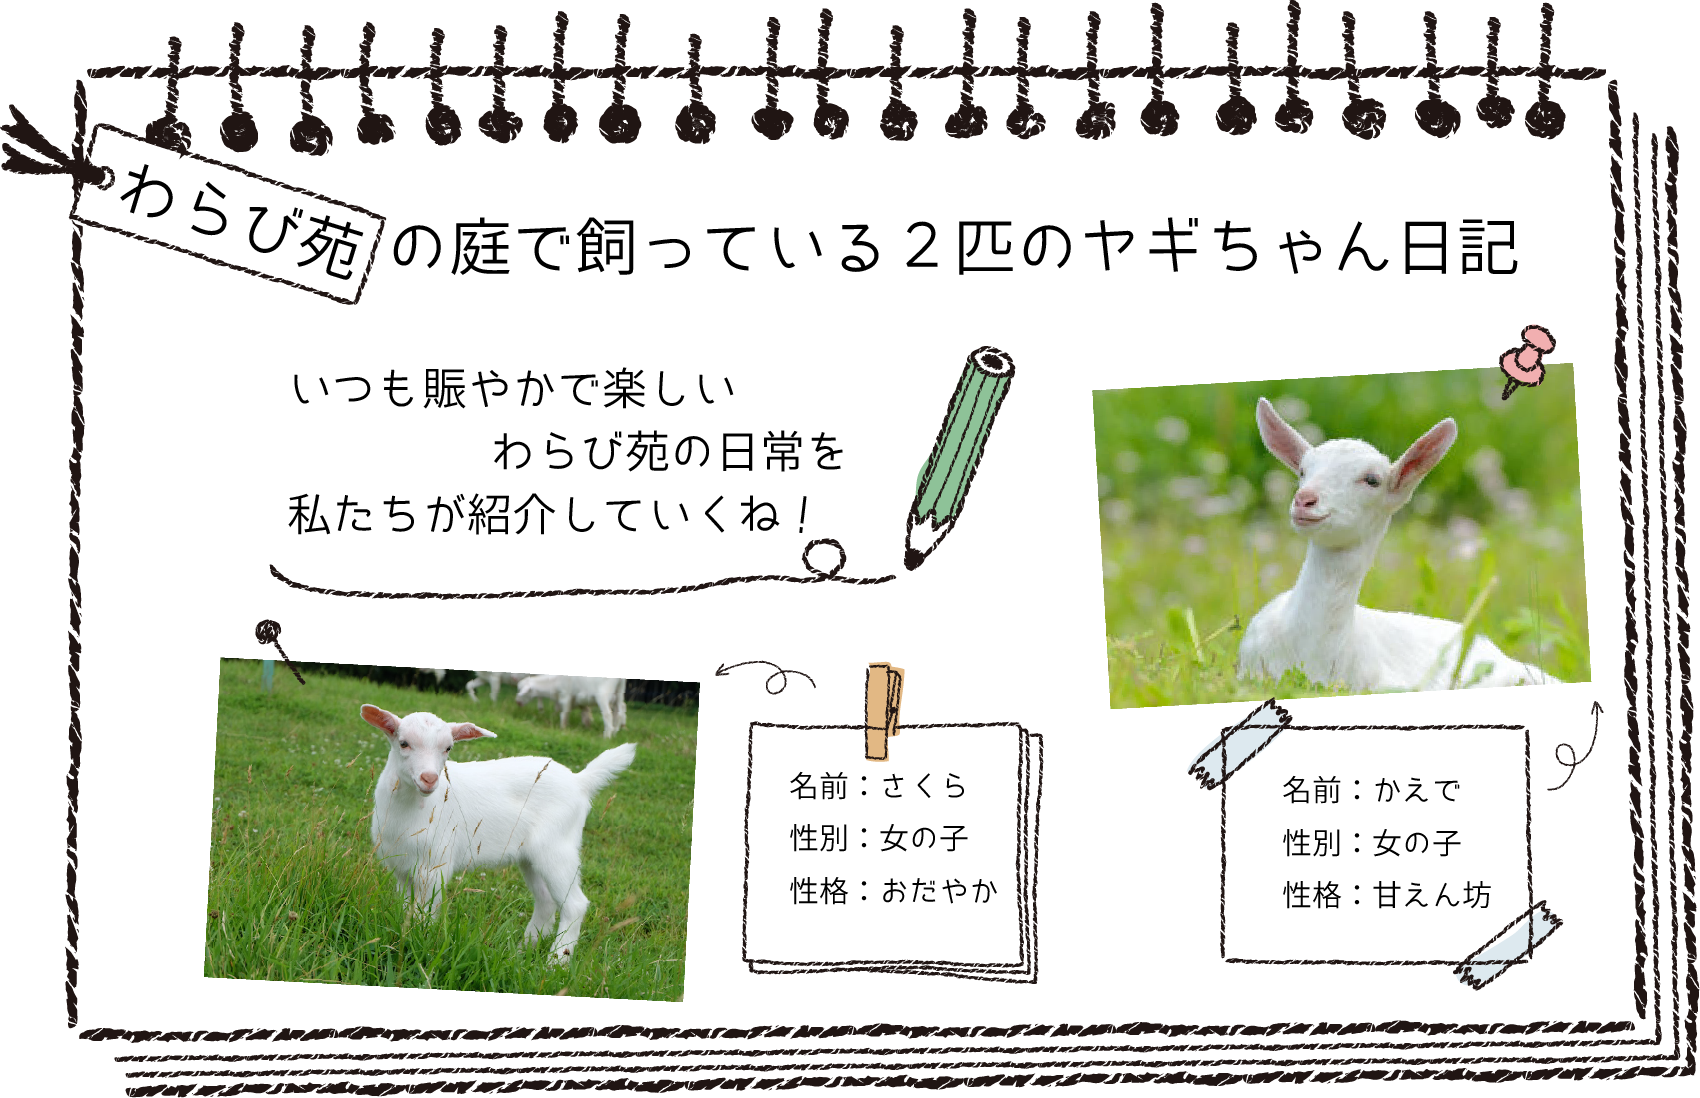 わらび苑の庭で飼っている２匹のヤギちゃん日記
いつも賑やかで楽しい
わらび苑の日常を
私たちが紹介していくね！
名前：さくら
性別：女の子
性格：おだやか
名前：かえで
性別：女の子
性格：甘えん坊